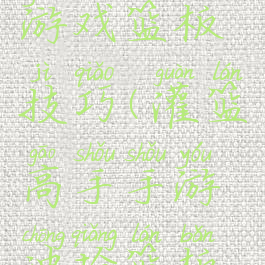 游戏篮板
jì qiǎo guàn lán
技巧(灌篮
gāo shǒu shǒu yóu
高手手游
qiǎng lán bǎn